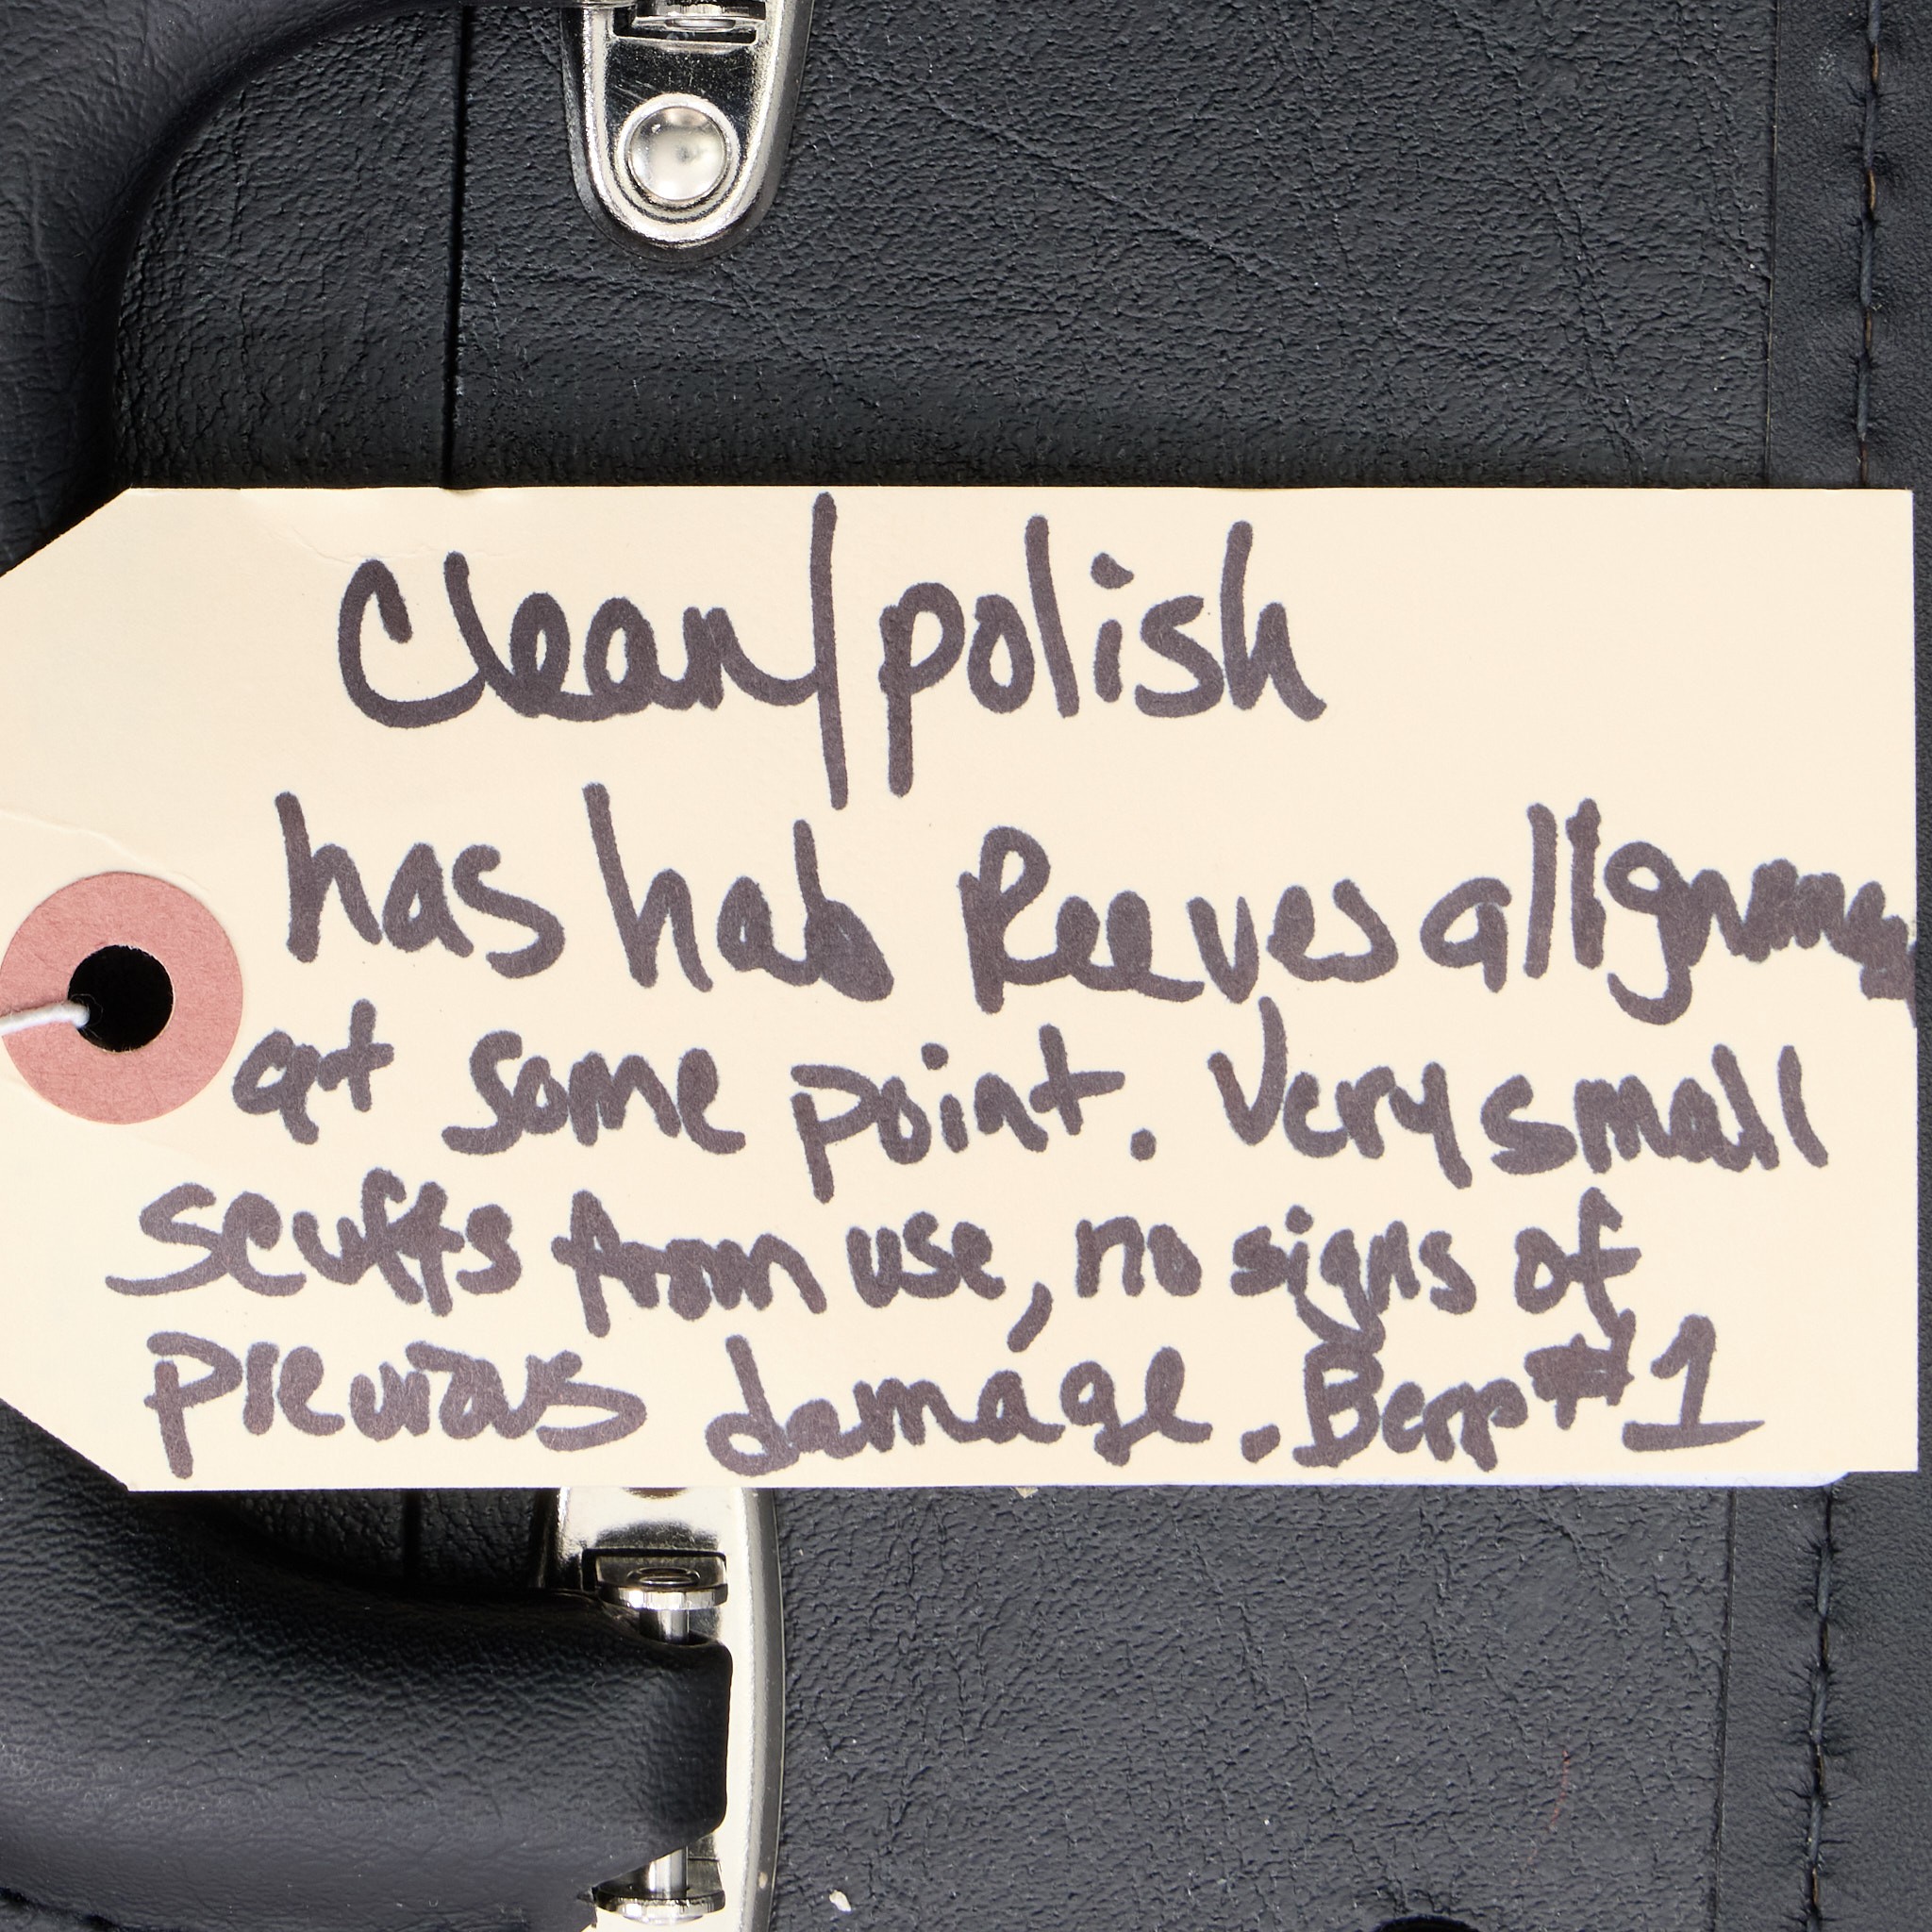 Clean/polish
has had Reeves allignmen
at some point. Very small
scuffs from use, no signs of
previous damage. Berp #1